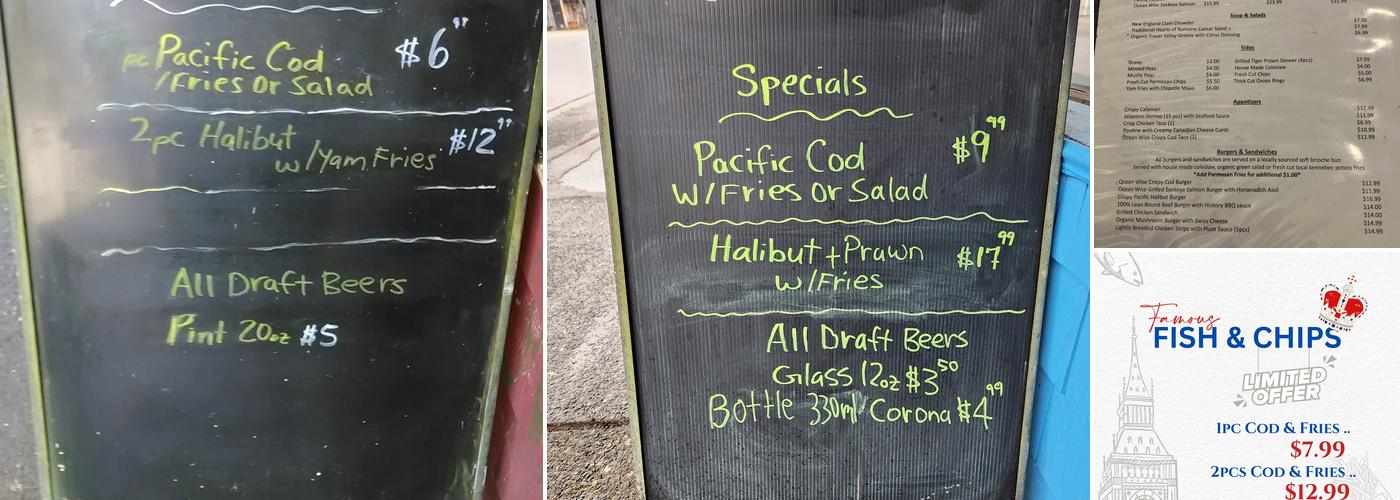 pc Pacific Cod $6.99
/Fries Or Salad
2pc Halibut $12.99
w/Yam Fries
All Draft Beers
Pint 20oz $5
Specials
Pacific Cod $9.99
W/Fries Or Salad
Halibut + Prawn $17.99
w/Fries
All Draft Beers
Glass 12oz $3.50
Bottle 330ml Corona $4.99
Ocean Wise Sockeye Salmon $15.99 $23.99 $31.99
Soup & Salads
New England Clam Chowder $7.50
Traditional Hearts of Romaine Caesar Salad + $7.99
* Organic Fraser Valley Greens with Citrus Dressing $6.99
Sides
Gravy $3.00 Grilled Tiger Prawn Skewer (4pcs) $7.99
Minted Peas $4.00 House Made Coleslaw $4.00
Mushy Peas $4.00 Fresh Cut Chips $5.00
Fresh Cut Parmesan Chips $5.50 Thick Cut Onion Rings $6.99
Yam Fries with Chipotle Mayo $6.00
Appetizers
Crispy Calamari $12.99
Jalapeno Shrimp (15 pcs) with Seafood Sauce $11.99
Crisp Chicken Taco (1) $6.99
Poutine with Creamy Canadian Cheese Curds $10.99
Ocean Wise Crispy Cod Taco (2) $12.99
Burgers & Sandwiches
All burgers and sandwiches are served on a locally sourced soft brioche bun
Served with house made coleslaw, organic green salad or fresh cut local kennebec potato fries
*Add Parmesan Fries for additional $1.00*
Ocean Wise Crispy Cod Burger $12.99
Ocean Wise Grilled Sockeye Salmon Burger with Horseradish Aioli $15.99
Crispy Pacific Halibut Burger $16.99
100% Lean Round Beef Burger with Hickory BBQ sauce $14.00
Grilled Chicken Sandwich $14.00
Organic Mushroom Burger with Swiss Cheese $14.99
Lightly Breaded Chicken Strips with Plum Sauce (5pcs) $14.99
Famous
FISH & CHIPS
LIMITED
OFFER
1PC COD & FRIES ..
$7.99
2PCS COD & FRIES ..
$12.99